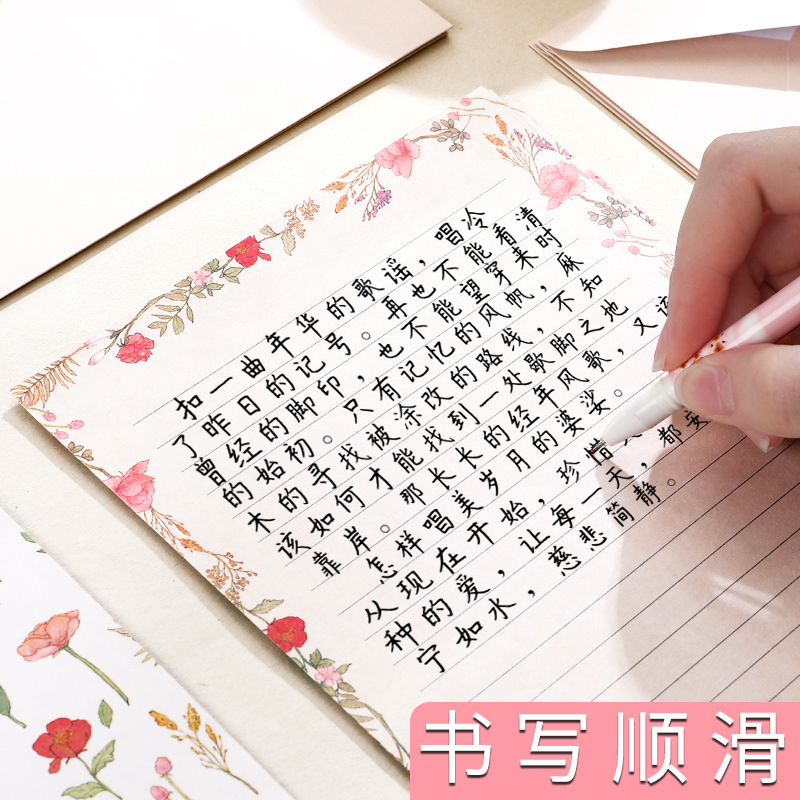 扣一曲年华的歌谣，唱冷
了昨日的记号。再也不能看清
曾经的脚印，也不能望穿来时
的始初。只有记忆的风帆，麻
木的寻找被涂改的路线，不知
该如何才能找到一处歇脚之地
靠岸。那长长的经年风歌，又该
怎样唱美岁月的婆娑。
从现在开始，珍惜
种的爱，让每一天，都安
宁如水，慈悲简静。
书写顺滑